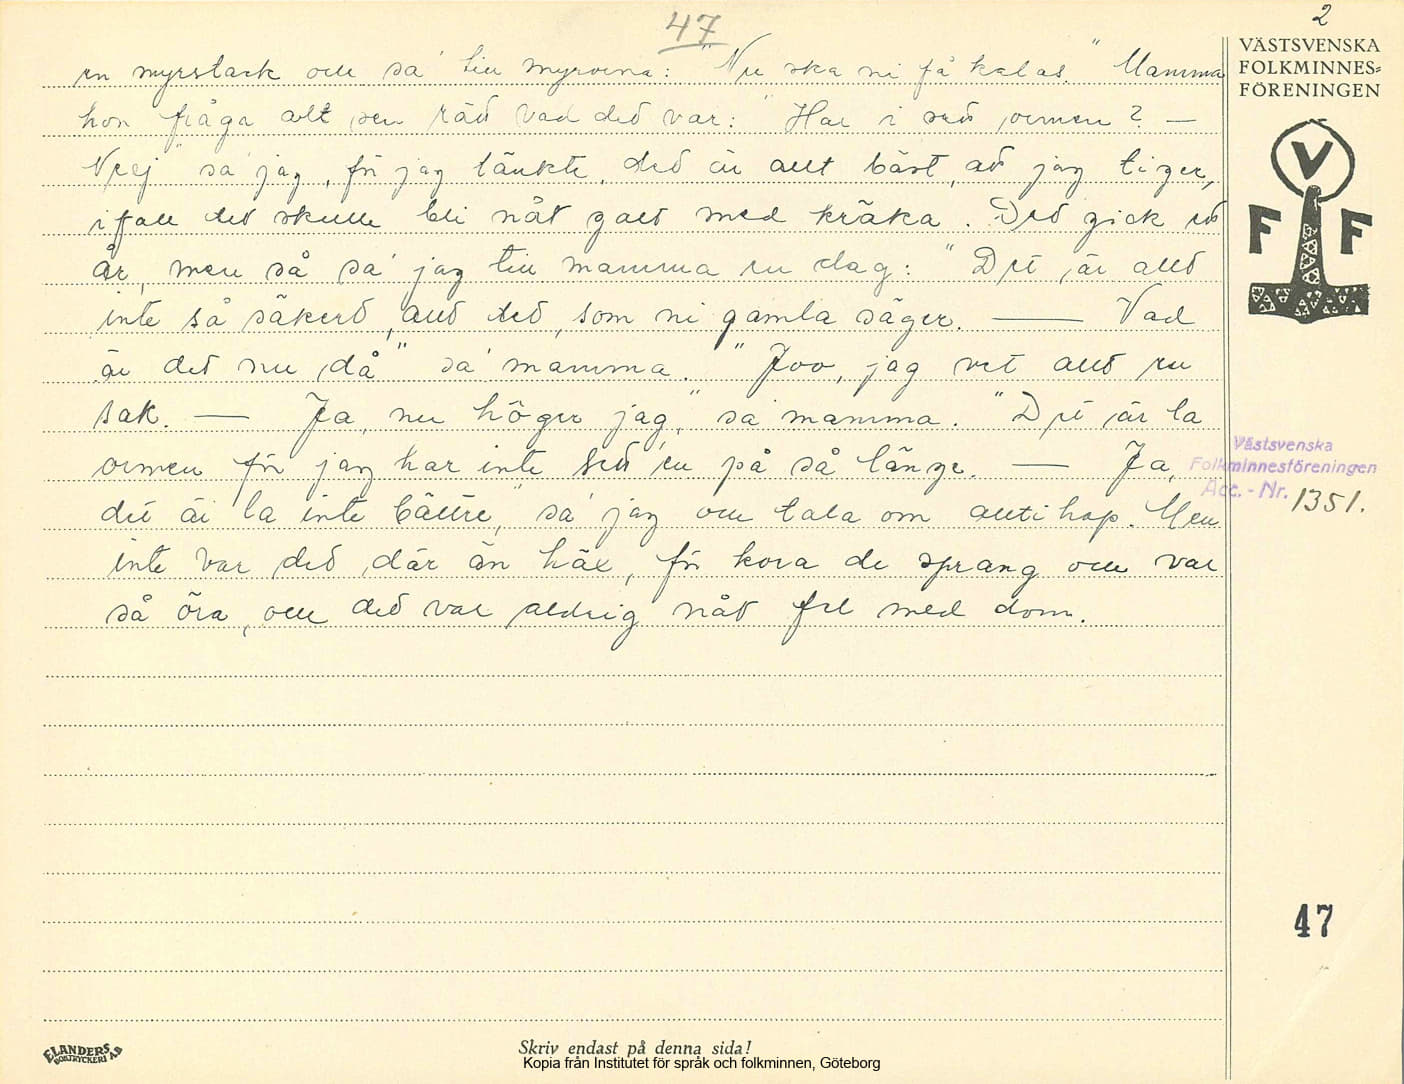 47
2
VÄSTSVENSKA
FOLKMINNES=
FÖRENINGEN
V
F F
en myrstack och sa' till myrorna: "Nu ska ni få kalas." Mamma
hon fråga alt sen räd vad ded var: "Har i sed ormen? —
Nej" sa' jag, för jag tänkte, ded är allt bäst, ad jag tiger,
ifall ded skulle bli nåt galt med kräka. Ded gick ed
år, men så sa' jag till mamma en dag: "Det är alld
inte så säkerd, alld ded, som ni gamla säger. — Vad
är det nu då" sa' mamma. "Joo, jag vet alld en
sak. — Ja, nu höger jag," sa' mamma. "Det är la
ormen för jag har inte sed'en på så länge. — Ja,
det är la inte bättre," sa' jag och tala om alltihop. Men
inte var ded där än häx, för kora de sprang och var
så öra, och ded var aldrig nåt fel med dom.
Västsvenska
Folkminnesföreningen
Acc.-Nr. 1351.
47
ELANDERS
BOKTRYCKERI AB
Skriv endast på denna sida!
Kopia från Institutet för språk och folkminnen, Göteborg